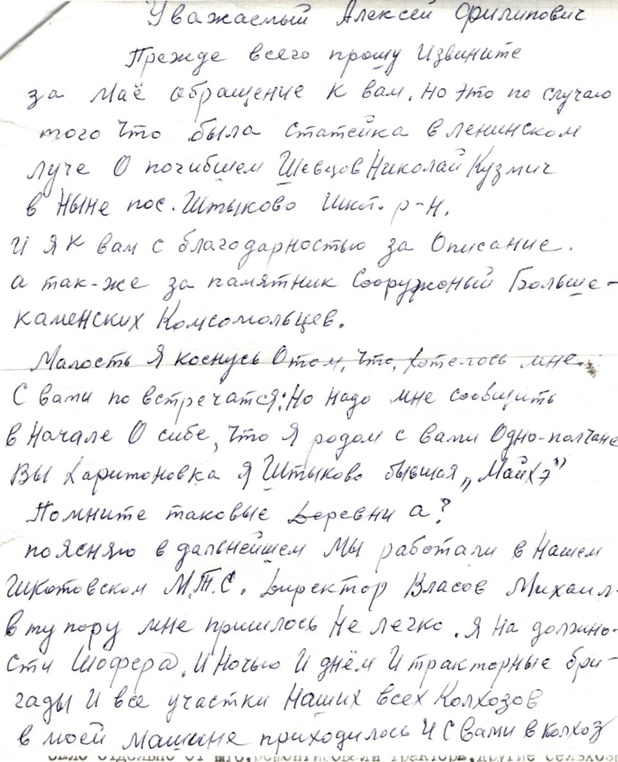 Уважаемый Алексей Филипович
Прежде всего прошу Извините
за Маё обращение к вам. Но это по случаю
того Что была статейка в ленинском
луче О погибшем Шевцов Николай Кузмич
в Ныне пос. Штыково Шкт. р-Н.
И Я К вам с благодарностью за Описание.
а так-же за памятник Сооружоный Больше-
каменских Комсомольцев.
Малость Я коснусь О том, что, хотелось мне
С вами по встречатся: Но надо мне сообщить
в Начале О себе, Что Я родом с вами Одно-полчане
Вы Харитоновка Я Штыково бывшая „Майхэ"
Помните таковые Деревни а?
поясняю в дальнейшем Мы работали в Нашем
Шкотовском М.Т.С. Директор Власов Михаил.
в ту пору мне пришлось Не легко. Я На должно-
сти Шофера. И Ночью И днём И тракторные бри-
гады И все участки Наших всех Колхозов
в моей машине приходилось И С Вами в Колхоз